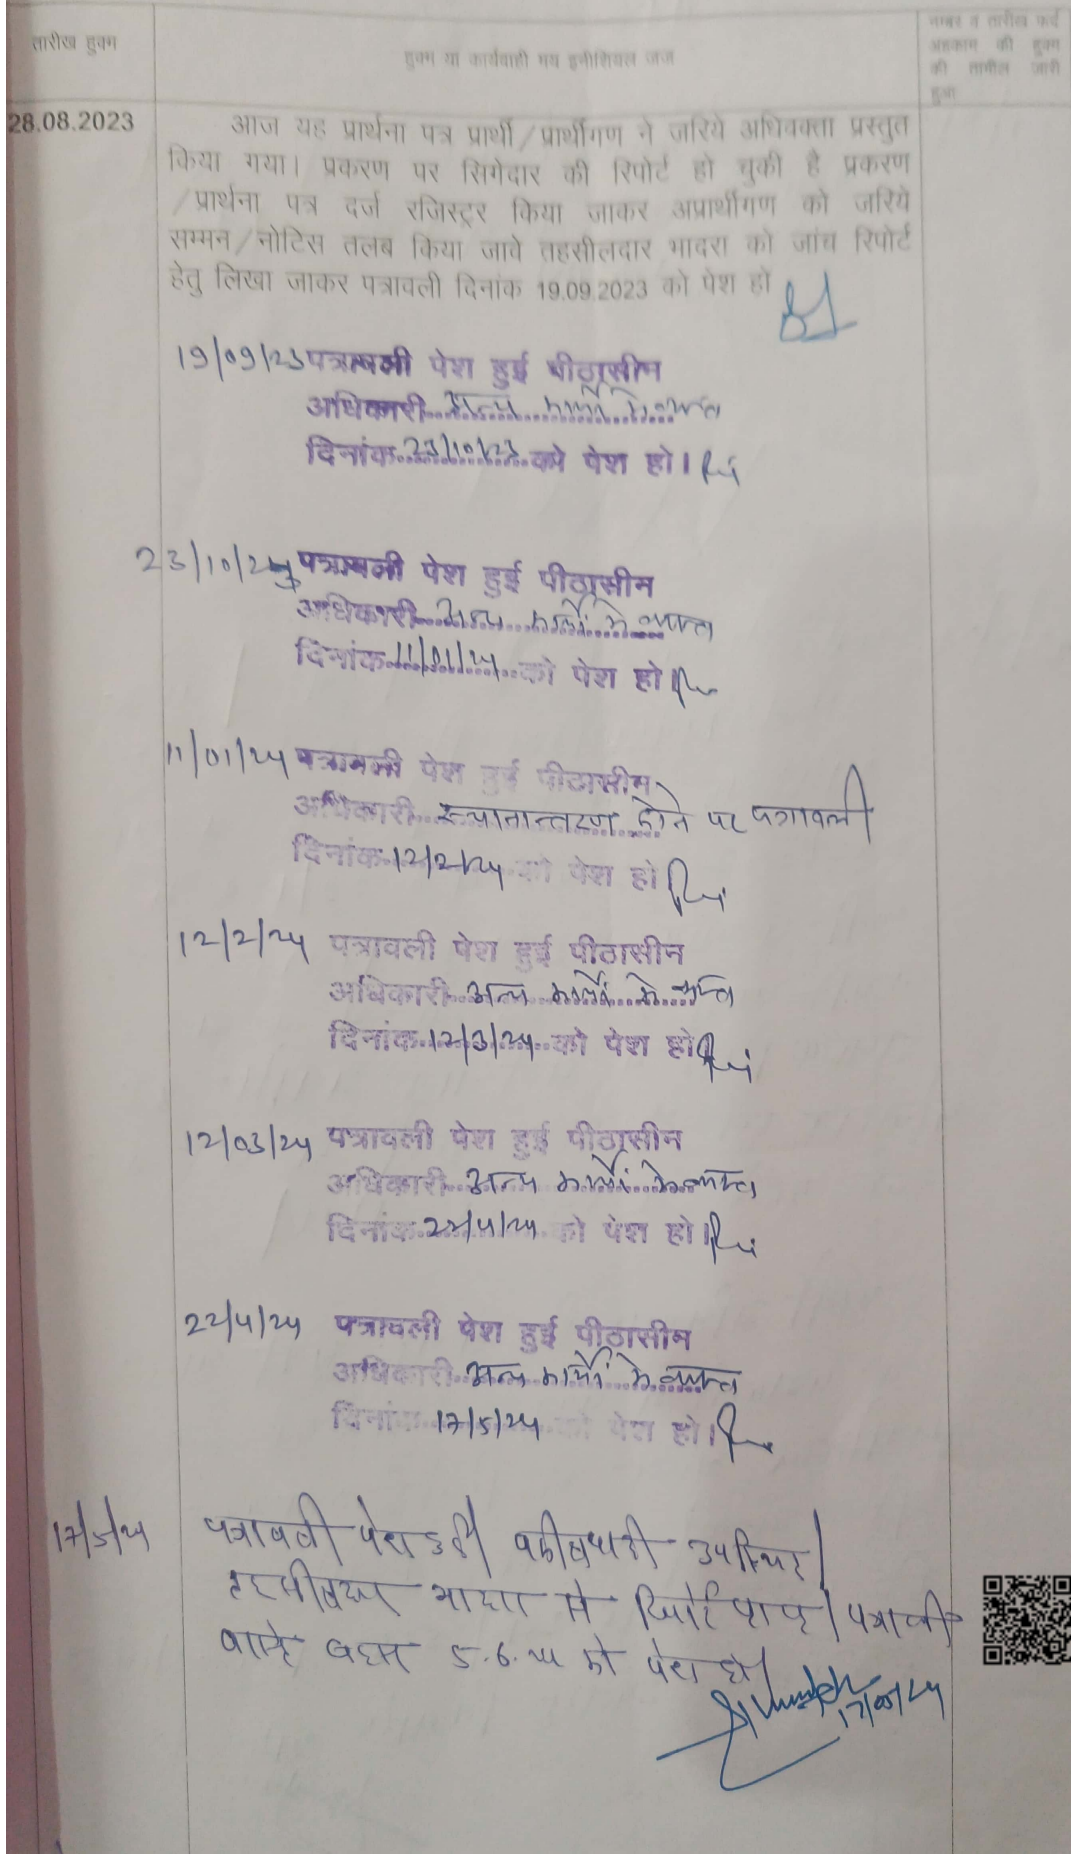 तारीख हुक्म
हुक्म या कार्यवाही मय इनीशियल जज
नम्बर व तारीख फर्द
अहकाम की हुक्म
की तामील जारी
हुआ
28.08.2023
आज यह प्रार्थना पत्र प्रार्थी/प्रार्थीगण ने जरिये अधिवक्ता प्रस्तुत
किया गया। प्रकरण पर सिगेदार की रिपोर्ट हो चुकी है प्रकरण
/प्रार्थना पत्र दर्ज रजिस्ट्रर किया जाकर अप्रार्थीगण को जरिये
सम्मन/नोटिस तलब किया जावे तहसीलदार भादरा को जांच रिपोर्ट
हेतु लिखा जाकर पत्रावली दिनांक 19.09.2023 को पेश हो
19/09/23 पत्रावली पेश हुई पीठासीन
अधिकारी अन्य कार्यों मे व्यस्त
दिनांक 23/10/23 को पेश हो।
23/10/23 पत्रावली पेश हुई पीठासीन
अधिकारी अन्य कार्यों मे व्यस्त
दिनांक 11/01/24 को पेश हो।
11/01/24 पत्रावली पेश हुई पीठासीन
अधिकारी स्थानान्तरण होने पर पत्रावली
दिनांक 12/2/24 को पेश हो
12/2/24 पत्रावली पेश हुई पीठासीन
अधिकारी अन्य कार्यों मे व्यस्त
दिनांक 12/3/24 को पेश हो
12/03/24 पत्रावली पेश हुई पीठासीन
अधिकारी अन्य कार्यों मे व्यस्त
दिनांक 22/4/24 को पेश हो।
22/4/24 पत्रावली पेश हुई पीठासीन
अधिकारी अन्य कार्यों मे व्यस्त
दिनांक 17/5/24 को पेश हो।
17/5/24 पत्रावली पेश हुई। वकील प्रार्थी उपस्थित।
तहसीलदार भादरा से रिपोर्ट प्राप्त। पत्रावली
वास्ते बहस 5.6.24 को पेश हो।
17/05/24